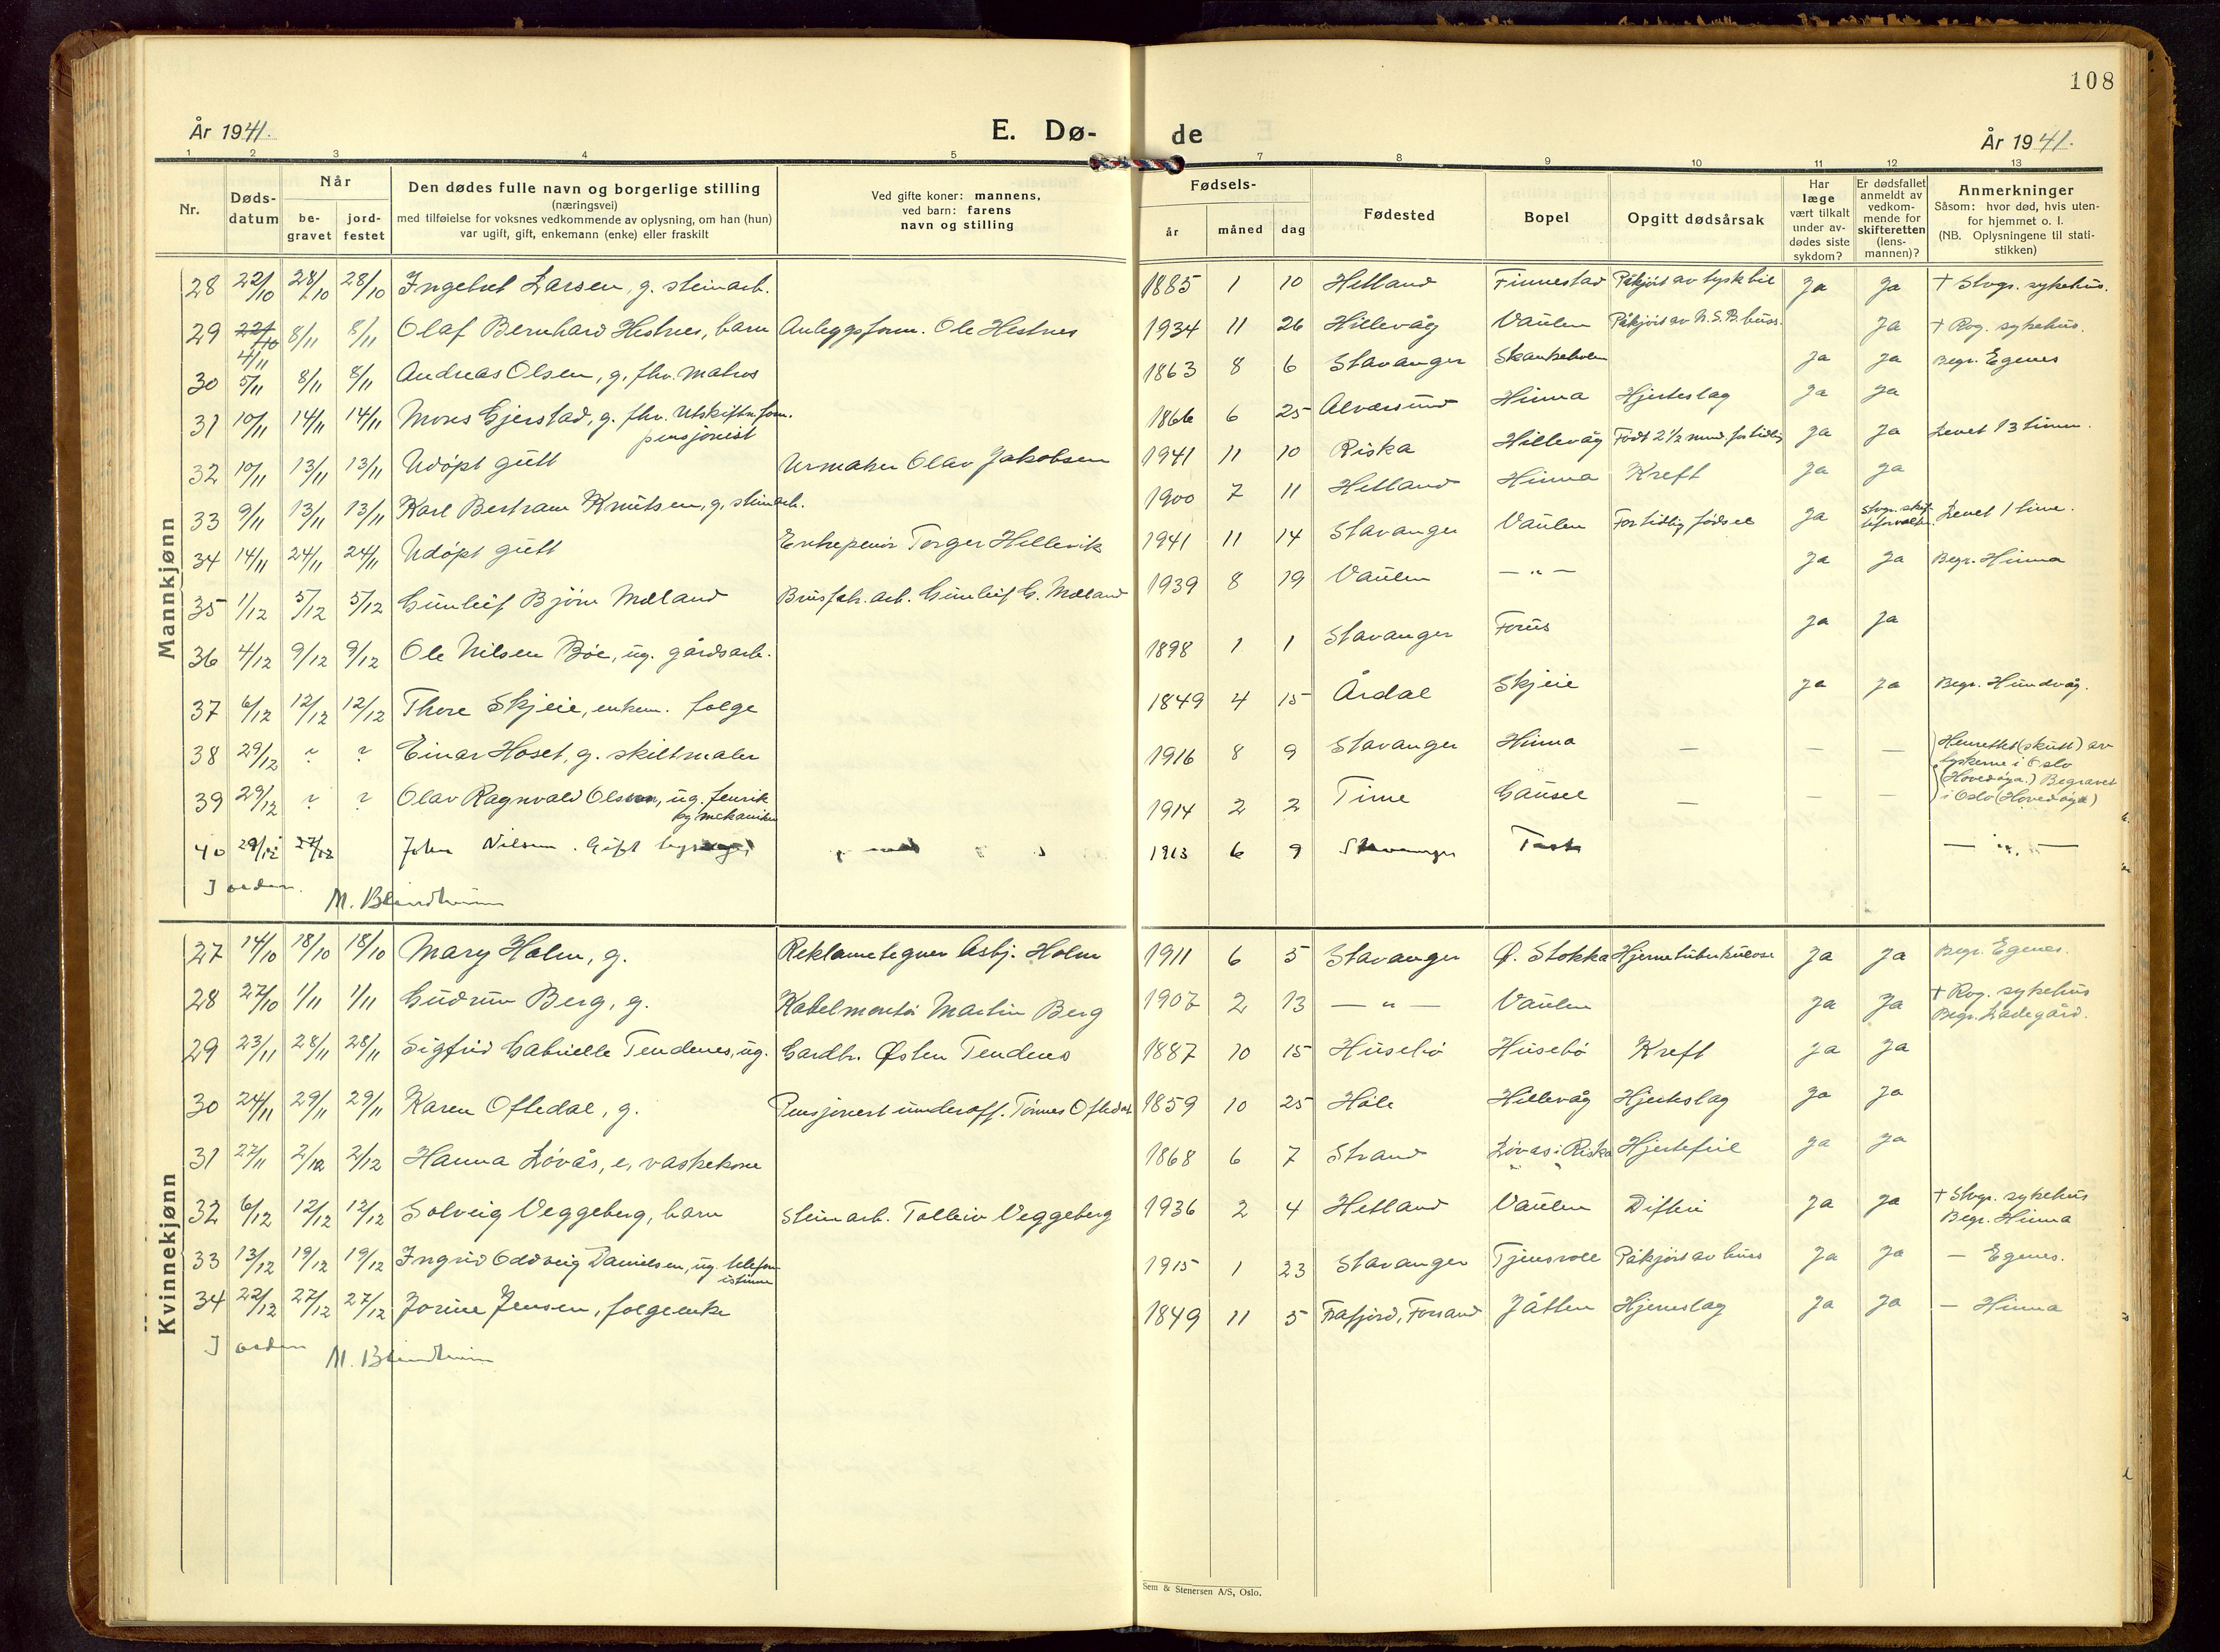 108
År 1941.
E. Dø-
de
År 1941.
1 2 3 4 5 7 8 9 10 11 12 13
Nr.
Døds-
datum
Når
be-
gravet
jord-
festet
Den dødes fulle navn og borgerlige stilling
(næringsvei)
med tilføielse for voksnes vedkommende av oplysning, om han (hun)
var ugift, gift, enkemann (enke) eller fraskilt
Ved gifte koner: mannens,
ved barn: farens
navn og stilling
Fødsels-
år måned dag
Fødested
Bopel
Opgitt dødsårsak
Har
læge
vært tilkalt
under av-
dødes siste
sykdom?
Er dødsfallet
anmeldt av
vedkom-
mende for
skifteretten
(lens-
mannen)?
Anmerkninger
Såsom: hvor død, hvis uten-
for hjemmet o. l.
(NB. Oplysningene til stati-
stikken)
Mannkjønn
28 22/10 28/10 28/10 Ingebret Larsen, g. steinarb. 1885 1 10 Hetland Finnestad Påkjørt av tysk bil Ja Ja † Stvgr. sykehus.
29 22/10 4/11 8/11 8/11 Olaf Bernhard Hestnes, barn Anleggsform. Ole Hestnes 1934 11 26 Hillevåg Vaulen Påkjørt av N.S.B. buss. Ja † Rog. sykehus.
30 5/11 8/11 8/11 Andreas Olsen, g. fhv. matros 1863 8 6 Stavanger Skankeholen Ja Ja Begr. Egenes
31 10/11 14/11 14/11 Mons Gjerstad, g. fhv. utskiftn.form.
pensjonist 1866 6 25 Alversund Hinna Hjerteslag Ja Ja
32 10/11 13/11 13/11 Udøpt gutt Urmaker Olav Jakobsen 1941 11 10 Riska Hillevåg Født 2 1/2 mnd. for tidlig Ja Ja Levet 13 timer.
33 9/11 13/11 13/11 Karl Bertram Knutsen, g. steinarb. 1900 7 11 Hetland Hinna Kreft Ja Ja
34 14/11 24/11 24/11 Udøpt gutt Entrepenør Torger Hellevik 1941 11 14 Stavanger Vaulen For tidlig fødsel Ja Stvgr. skif- Levet 1 time.
35 1/12 5/12 5/12 Gunleif Bjørn Mæland Brusfabr. arb. Gunleif G. Mæland 1939 8 19 Vaulen — " — Ja Ja Begr. Hinna
36 4/12 9/12 9/12 Ole Nilsen Bøe, ug. gårdsarb. 1898 1 1 Stavanger Forus Ja Ja
37 6/12 12/12 12/12 Thore Skjeie, enkem. folge 1849 4 15 Årdal Skjeie Ja Ja Begr. Hundvåg.
38 29/12 ? ? Einar Hoset, g. skiltmaler 1916 8 9 Stavanger Hinna — — — Henrettet (skutt) av
tyskerne i Oslo
(Hovedøya.) Begravet
i Oslo (Hovedøya)
39 29/12 ? ? Olav Ragnvald Olsen, ug. fenrik
og mekaniker 1914 2 2 Time Gausel — — —
40 29/12 27/12 John Nilsen. Gift 1913 6 9 Stavanger Tasta — " —
I orden.
M. Blindheim
Kvinnekjønn
27 14/10 18/10 18/10 Mary Holm, g. Reklametegner Asbj. Holm 1911 6 5 Stavanger Ø. Stokka Hjernetuberkulose Ja Ja Begr. Egenes.
28 27/10 1/11 1/11 Gudrun Berg, g. Kabelmontør Martin Berg 1907 2 13 — " — Vaulen Ja Ja † Rog. sykehus
Begr. Ladegård.
29 23/11 28/11 28/11 Sigfrid Gabrielle Tendenes, ug. Gardbr. Østen Tendenes 1887 10 15 Husebø Husebø Kreft Ja Ja
30 24/11 29/11 29/11 Karen Oftedal, g. Pensjonert underoff. Tønnes Oftedal 1859 10 25 Høle Hillevåg Hjerteslag Ja Ja
31 27/11 2/12 2/12 Hanna Løvås, e, vaskekone 1868 6 7 Strand Løvås i Riska Hjertefeil Ja Ja
32 6/12 12/12 12/12 Solveig Veggeberg, barn Steinarb. Tolleiv Veggeberg 1936 2 4 Hetland Vaulen Difteri Ja Ja † Stvgr. sykehus
Begr. Hinna
33 13/12 19/12 19/12 Ingrid Oddveig Danielsen, ug. telefon-
istinne 1915 1 23 Stavanger Tjensvoll Påkjørt av buss Ja Ja — Egenes.
34 22/12 27/12 27/12 Jorine Jensen, folgeenke 1849 11 5 Frafjord, Forsand Jåtten Hjerneslag Ja Ja — Hinna
I orden
M. Blindheim
Sem & Stenersen A/S, Oslo.